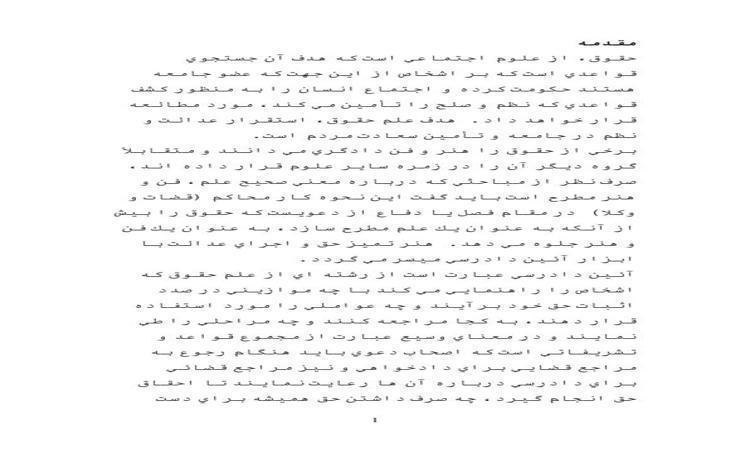 مقدمه
حقوق، از علوم اجتماعي است‌که هدف آن جستجوي
قواعدي است‌که بر اشخاص از اين جهت‌که عضو جامعه
هستند حکومت‌کرده و اجتماع انسان را به منظور کشف
قواعدي‌که نظم و صلح را تأمين‌مي‌کند، مورد مطالعه
قرار خواهد داد. هدف علم حقوق، استقرار عدالت و
نظم در جامعه و تأمين سعادت‌مردم است.
برخي از حقوق را هنر و فن دادگري‌مي دانند و متقابلاً
گروه ديگر آن را در زمره ساير علوم قرار داده اند.
صرف‌نظر از مباحثي‌که درباره معني صحيح علم، فن و
هنر مطرح است‌بايد گفت اين نحوه کار محاکم (قضات و
وکلا) درمقام فصل‌يا دفاع از دعويست‌که حقوق را بيش
از آنکه به عنوان يك علم مطرح سازد، به عنوان يك‌فن
و هنر جلوه مي دهد. هنر تميز حق و اجراي عدالت‌با
ابزار آئين دادرسي ميسر مي گردد.
آئين دادرسي عبارت است از رشته اي از علم حقوق که
اشخاص را راهنمايي‌مي‌کند با چه موازيني در صدد
اثبات حق خود برآيند و چه عواملي را مورد استفاده
قرار دهند، به کجا مراجعه کنند و چه مراحلي را طي
نمايند و در معناي وسيع عبارت از مجموع قواعد و
تشريفاتي است‌که اصحاب دعوي‌بايد هنگام رجوع به
مراجع قضايي براي دادخواهي و نيز مراجع قضائي
براي دادرسي درباره آن ها رعايت‌نمايند تا احقاق
حق انجام گيرد، چه صرف داشتن حق هميشه براي دست
1